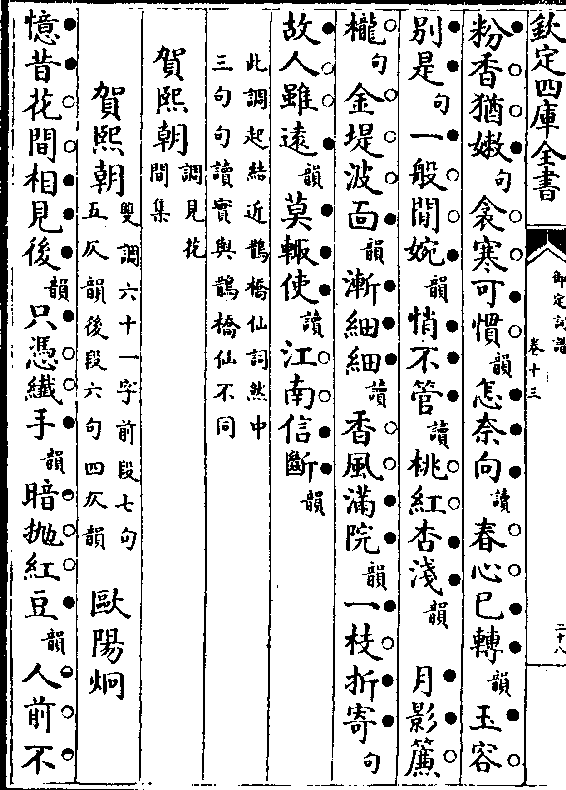 欽定四庫全書
御定詞譜
卷十三
二十八
粉香猶嫩句衾寒可慣韻怎奈向讀春心已轉韻玉容
别是句一般閒婉韻悄不管讀桃紅杏淺韻月影簾
櫳句金堤波面韻漸細細讀香風滿院韻一枝折寄句
故人雖遠韻莫輙使讀江南信斷韻
此調起結近鵲橋仙詞然中
三句句讀實與鵲橋仙不同
賀熙朝調見花
間集
賀熙朝雙調六十一字前段七句
五仄韻後段六句四仄韻歐陽炯
憶昔花間相見後韻只憑纎手韻暗抛紅豆韻人前不